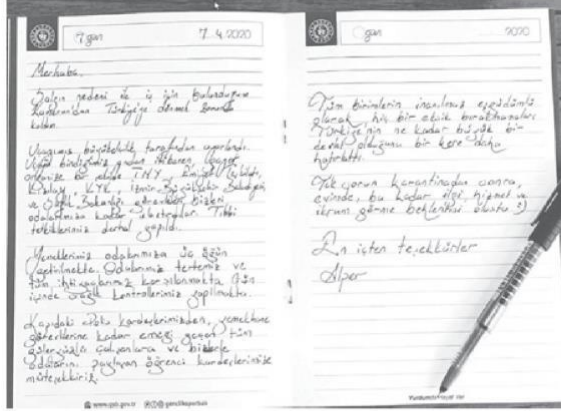 7. gün 7.4.2020
Merhaba,
Salgın nedeni ile iş için bulunduğum
'dan Türkiye'ye dönmek zorunda
kaldım.
Uçağımız büyükelçilik tarafından ayarlandı.
Uçağa bindiğimiz andan itibaren,
organize bir şekilde THY,
Kızılay, KYK, İzmir Büyükşehir
ve Sağlık Bakanlığı görevlileri bizleri
odalarımıza kadar ulaştırdılar. Tıbbi
tetkiklerimiz derhal yapıldı.
Yemeklerimiz odalarımıza üç öğün
getirilmekte. Odalarımız tertemiz ve
tüm ihtiyaçlarımız karşılanmakta. Gün
içinde sağlık kontrollerimiz yapılmakta.
Kapıdaki polis kardeşlerimizden, yemekhane
görevlilerine kadar emeği geçen tüm
güleryüzlü çalışanlara ve bizlerle
odalarını paylaşan öğrenci kardeşlerimize
müteşekkiriz.
www.gsb.gov.tr
gün 2020
Tüm birimlerin inanılmaz eşgüdümlü
olarak, hiç bir eksik bırakmamaları
Türkiye'nin ne kadar büyük bir
devlet olduğunu bir kere daha
hatırlattı.
Tek sorun karantinadan sonra,
evimde, bu kadar ilgi, hizmet ve
ikram görme beklentisi oluştu :)
En içten teşekkürler
Alper